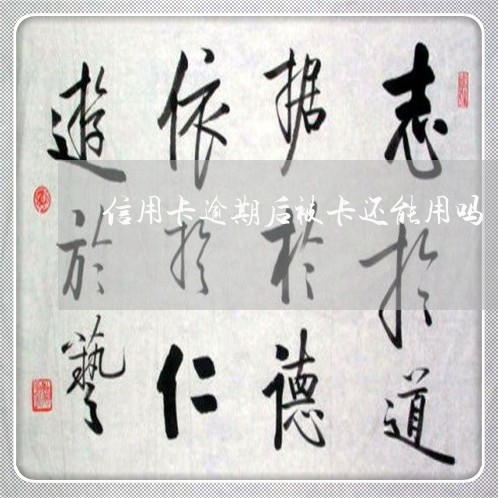 志於道
据於德
依於仁
遊於藝
信用卡逾期后被卡还能用吗